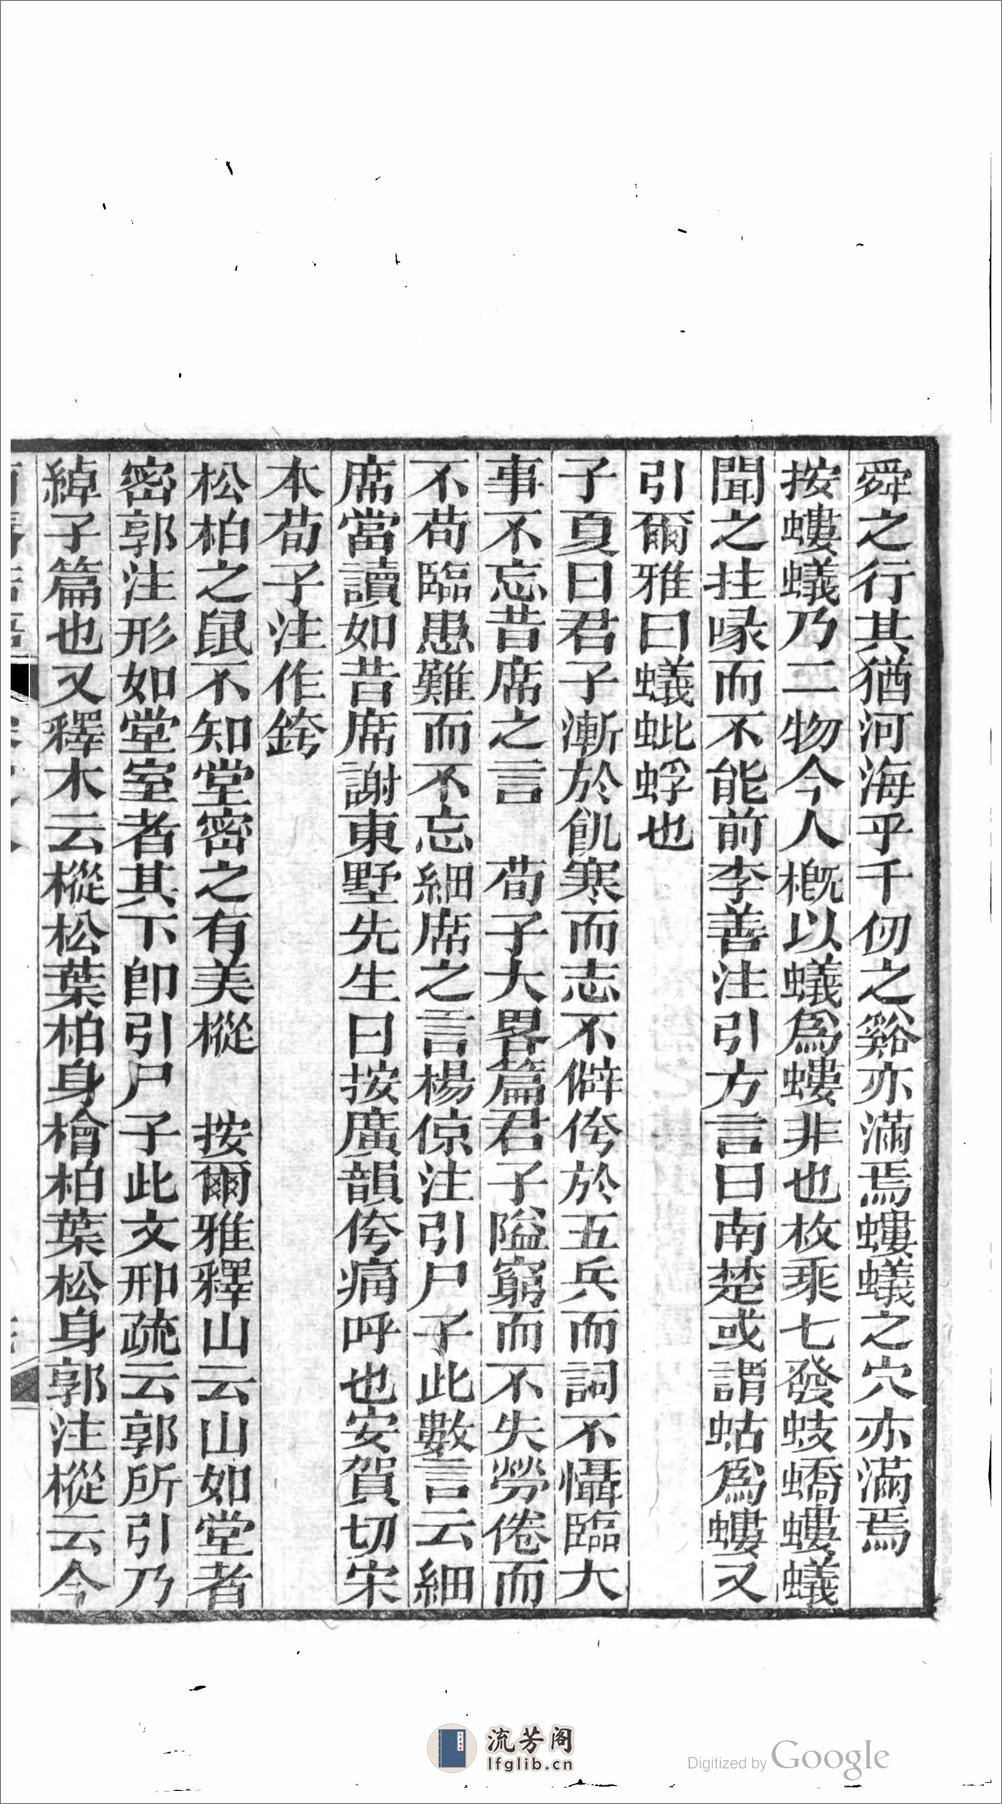 舜之行其猶河海乎千仞之谿亦滿焉螻蟻之穴亦滿焉
按螻蟻乃二物今人概以蟻爲螻非也枚乘七發蚑蟜螻蟻
聞之拄喙而不能前李善注引方言曰南楚或謂蛄爲螻又
引爾雅曰蟻蚍蜉也
子夏曰君子漸於飢寒而志不僻侉於五兵而詞不懾臨大
事不忘昔席之言　荀子大畧篇君子隘窮而不失勞倦而
不苟臨患難而不忘細席之言楊倞注引尸子此數言云細
席當讀如昔席謝東墅先生曰按廣韻侉痛呼也安賀切宋
本荀子注作銙
松柏之鼠不知堂密之有美樅　按爾雅釋山云山如堂者
密郭注形如堂室者其下卽引尸子此文邢疏云郭所引乃
綽子篇也又釋木云樅松葉柏身檜柏葉松身郭注樅云今
流芳阁
lfglib.cn
Digitized by Google